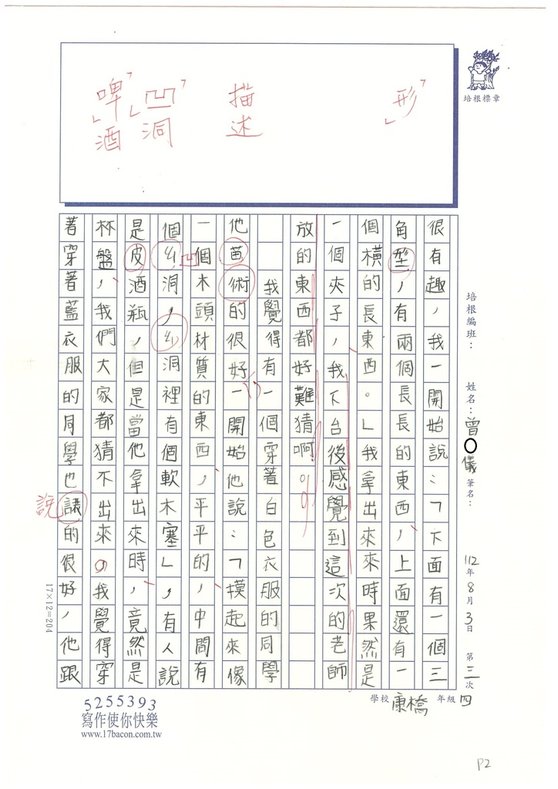 啤酒
凹洞
描述
形
培根標章
培根編班：
姓名：曾○儀
筆名：
112年8月3日
第三次
學校 康橋
年級 四
很有趣，我一開始說：「下面有一個三
角型，有兩個長長的東西，上面還有一
個橫的長東西。」我拿出來來時果然是
一個夾子，我下台後感覺到這次的老師
放的東西都好難猜啊！
我覺得有一個穿著白色衣服的同學
他苗術的很好，一開始他說：「摸起來像
一個木頭材質的東西，平平的，中間有
個ㄠ洞，ㄠ洞裡有個軟木塞」，有人說
凹
是皮酒瓶，但是當他拿出來時，竟然是
杯盤，我們大家都猜不出來。我覺得穿
著穿著藍衣服的同學也議的很好，他跟
說
17×12=204
5255393
寫作使你快樂
www.17bacon.com.tw
P2